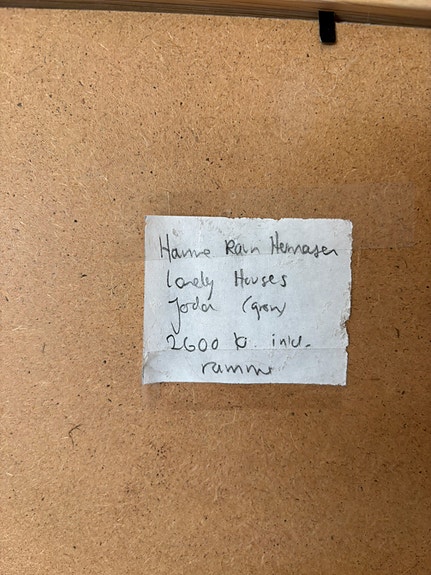 Hanne Ravn Hermansen
Lonely Houses
(grøn)
2600 kr. inkl.
ramme